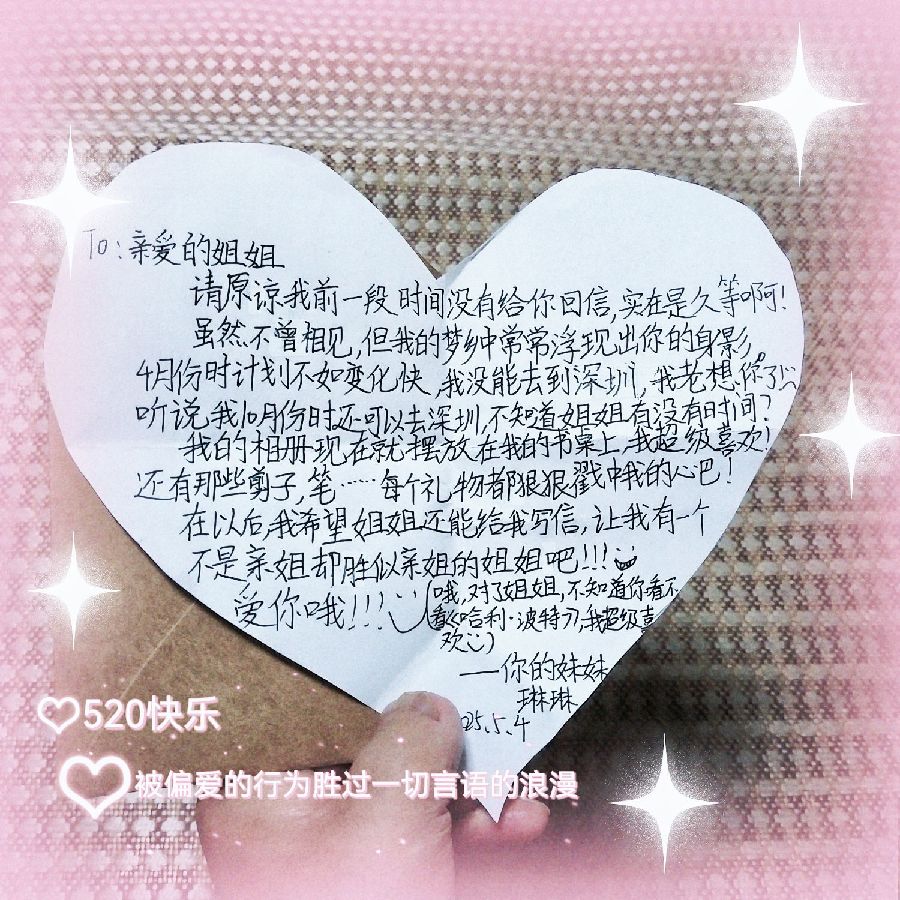 To:亲爱的姐姐
请原谅我前一段时间没有给你回信,实在是久等啊!
虽然不曾相见,但我的梦乡中常常浮现出你的身影。
4月份时计划不如变化快,我没能去到深圳,我老想你了
听说,我10月份时还可以去深圳,不知道姐姐有没有时间?
我的相册现在就摆放在我的书桌上,我超级喜欢!
还有那些剪子,笔……每个礼物都狠狠戳中我的心巴!
在以后,我希望姐姐还能给我写信,让我有一个
不是亲姐却胜似亲姐的姐姐吧!!!
爱你哦!!!
(哦,对了姐姐,不知道你看不
看《哈利·波特》,我超级喜
欢)
——你的妹妹
琳琳
25.5.4
520快乐
被偏爱的行为胜过一切言语的浪漫